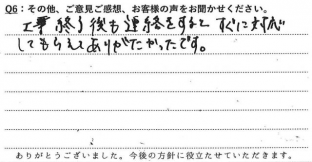 Q6：その他、ご意見ご感想、お客様の声をお聞かせください。
工事終了後も連絡をすると すぐに対応
してもらえてありがたかったです。
ありがとうございました。今後の方針に役立たせていただきます。